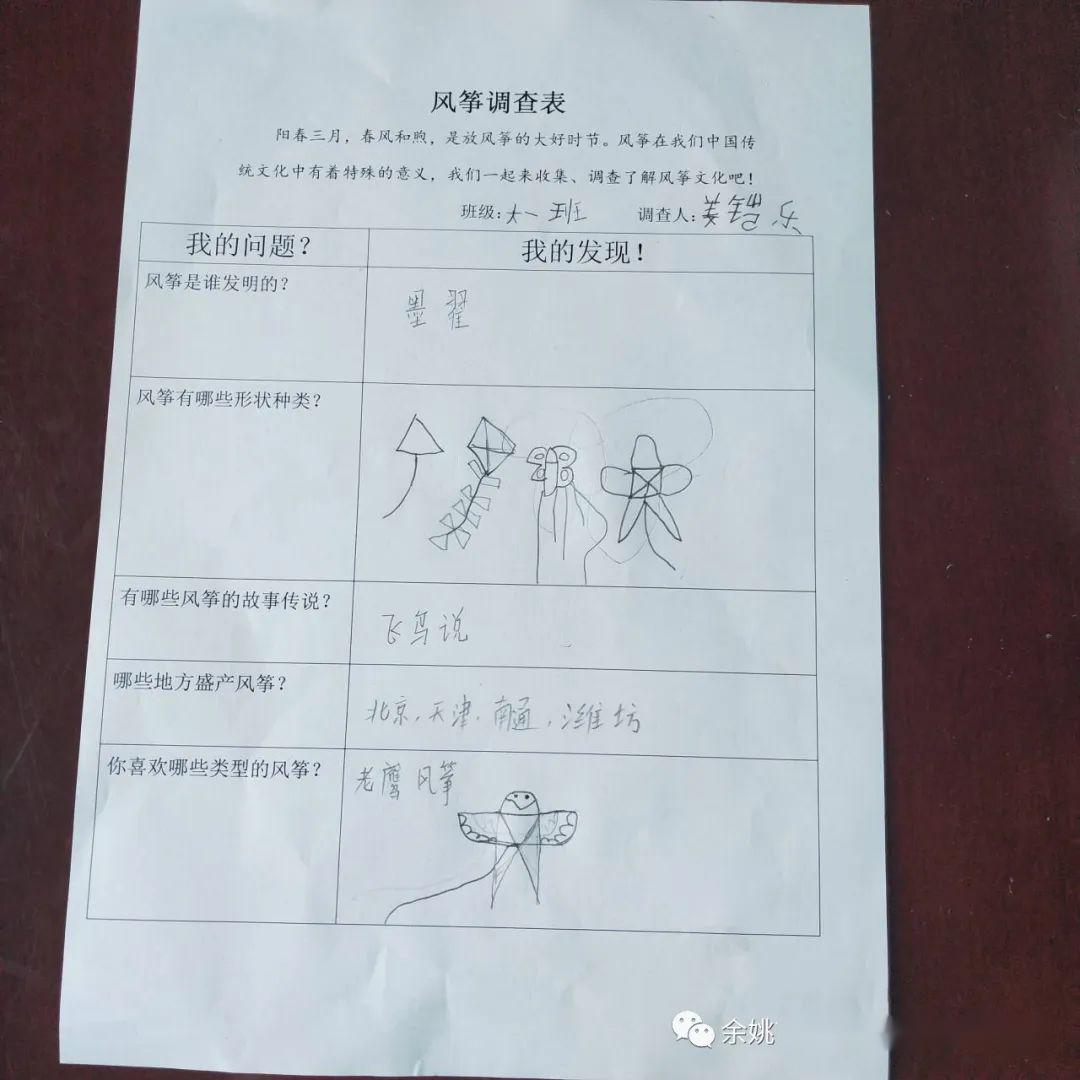 风筝调查表
阳春三月，春风和煦，是放风筝的大好时节。风筝在我们中国传
统文化中有着特殊的意义，我们一起来收集、调查了解风筝文化吧！
班级：大一班 调查人：乐
我的问题？ 我的发现！
风筝是谁发明的？ 墨翟
风筝有哪些形状种类？
有哪些风筝的故事传说？ 飞鸟说
哪些地方盛产风筝？ 北京，天津，南通，潍坊
你喜欢哪些类型的风筝？ 老鹰风筝
余姚